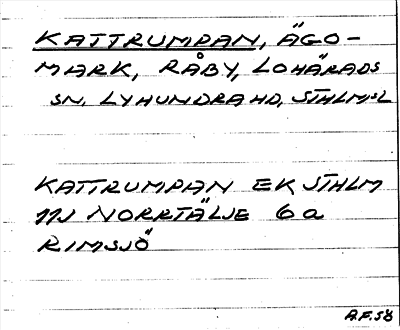 KATTRUMPAN, ÄGO-
MARK, RÅBY, LOHÄRADS
SN, LYHUNDRA HD, STHLMSL
KATTRUMPAN EK STHLM
11J NORRTÄLJE 6a
RIMSJÖ
A.F. 58